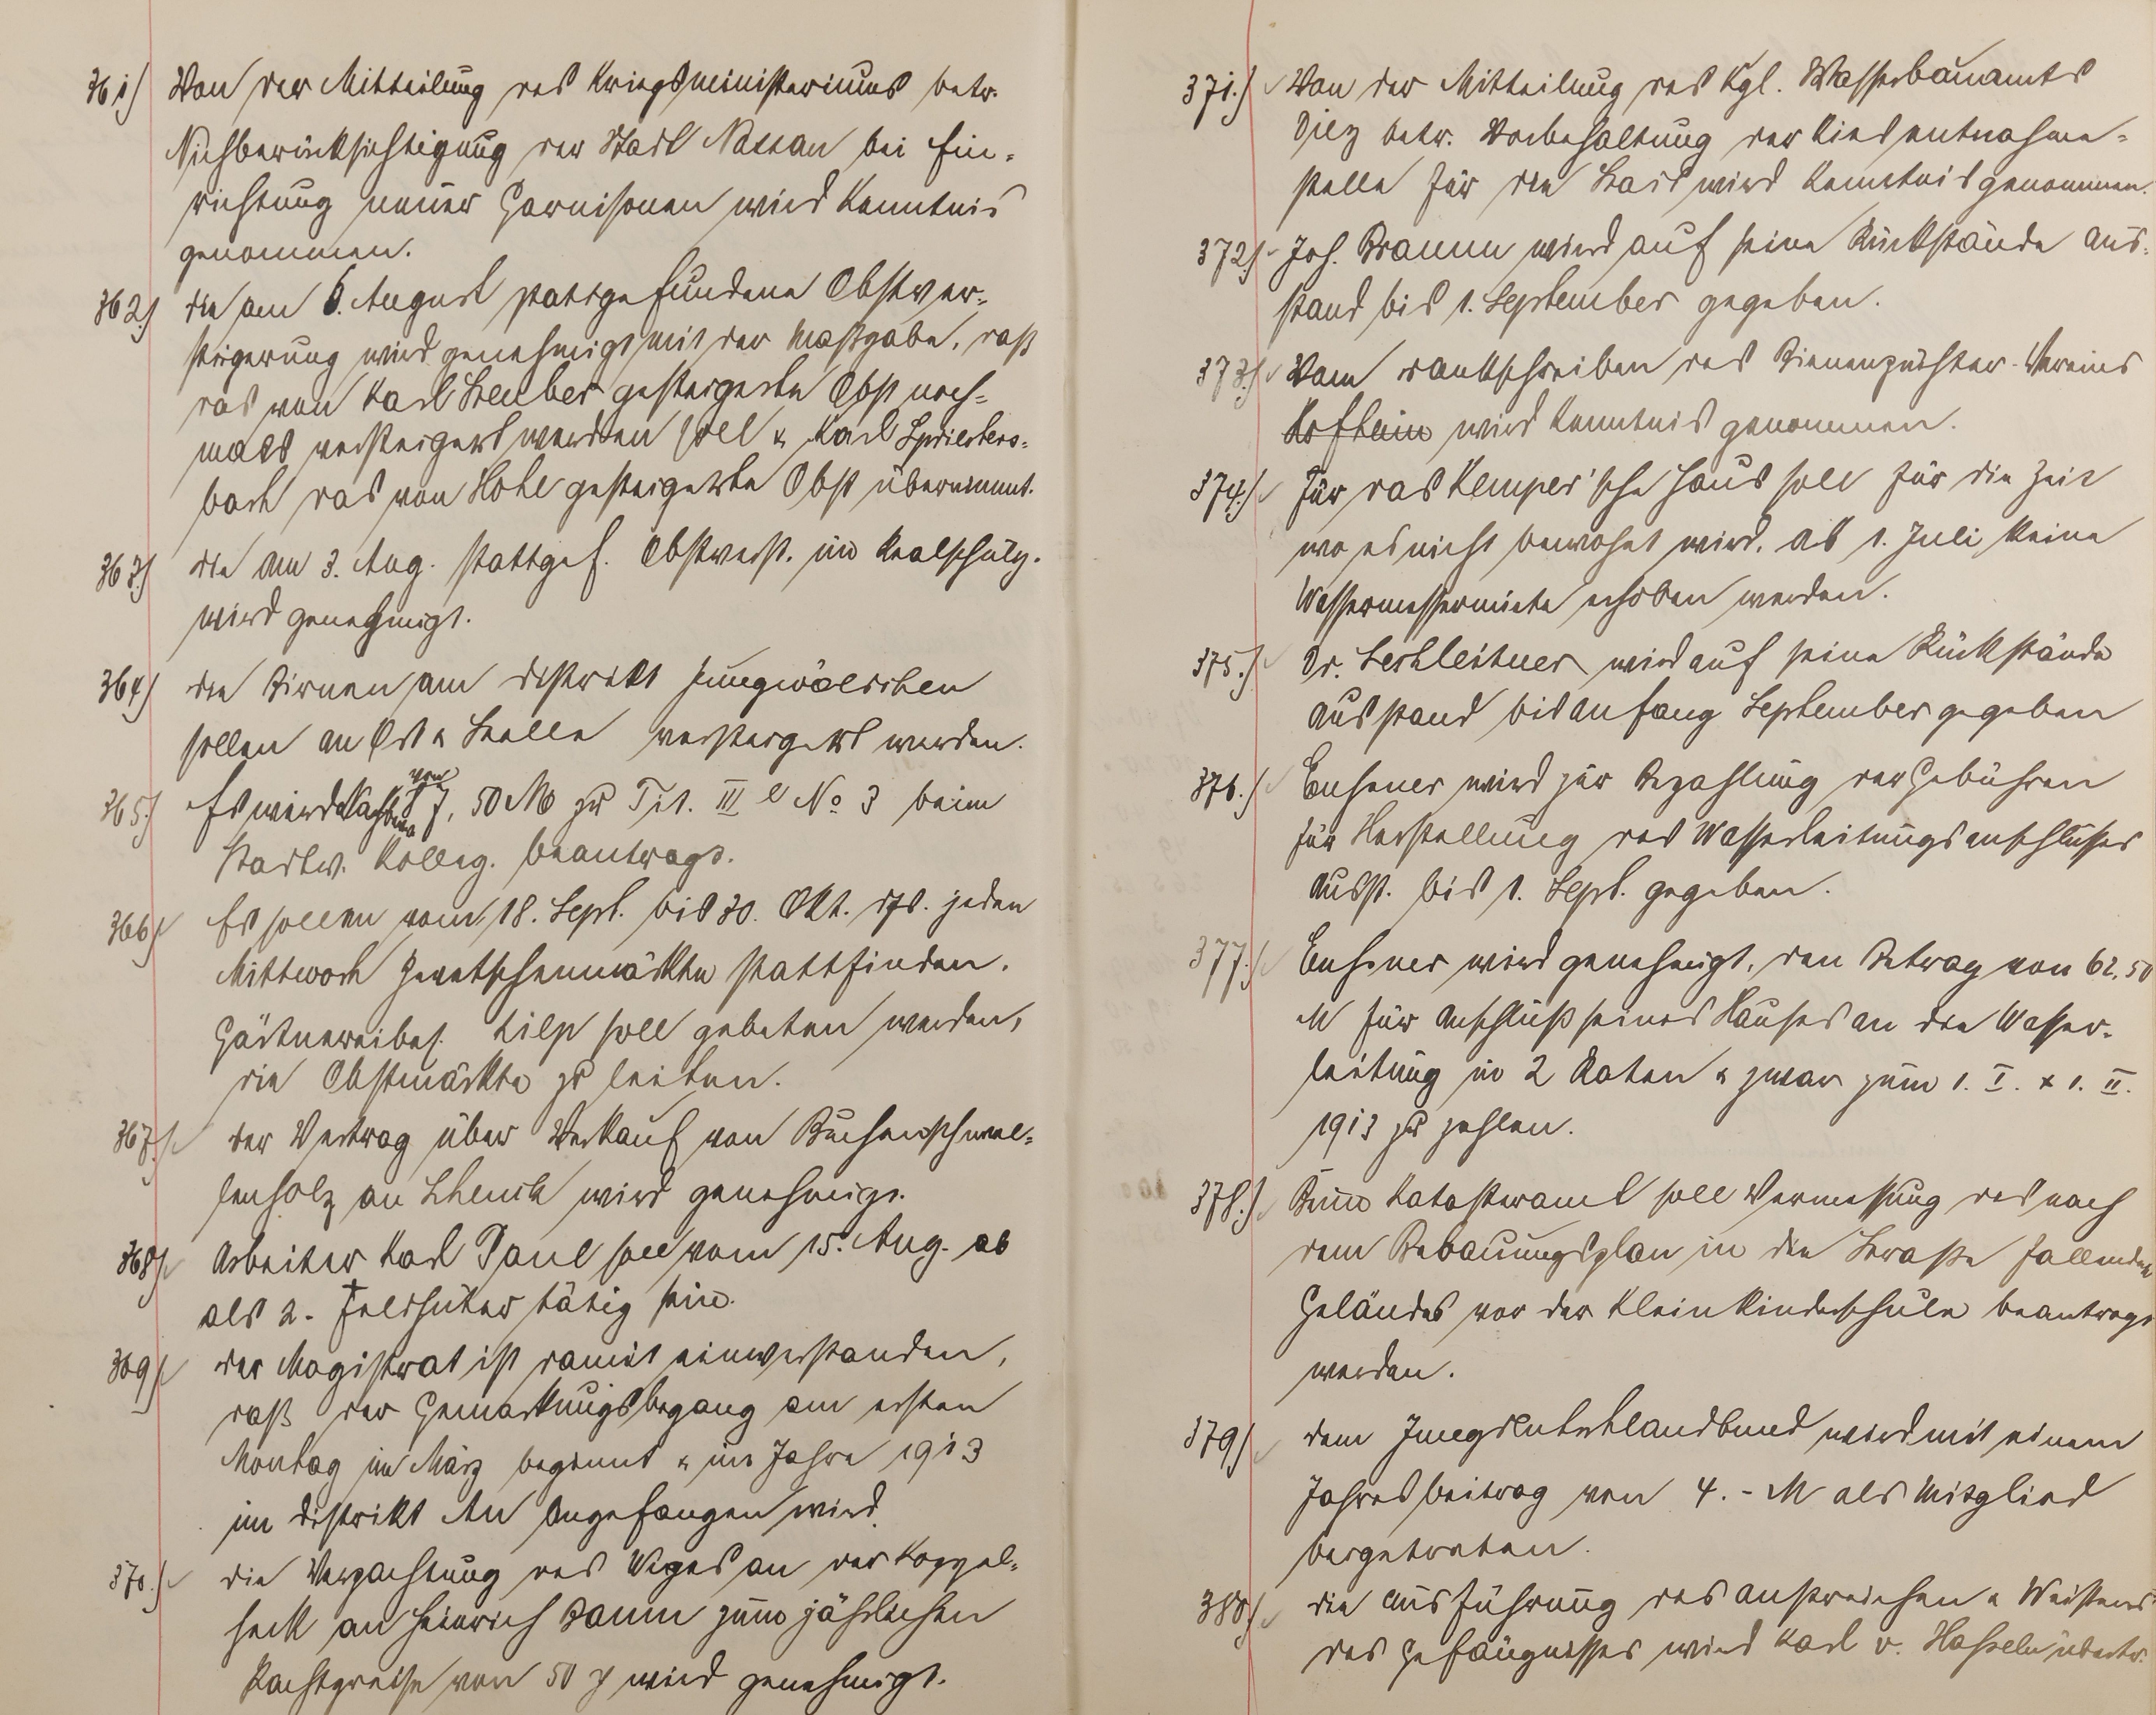 361) Von der Mitteilung des Kriegsministeriums betr.
Nichberücksichtigung der Stadt Nassau bei Ein-
richtung neuer Garnisonen wird Kenntnis
genommen.
362.) die am 6. August stattgefundene Obstver-
steigerung wird genehmigt mit der Maßgabe, daß
das von Karl gesteigerte Obst noch-
mals versteigert werden soll & Karl Spriesters-
bach das von Hohl gesteigerte Obst übernimmt.
363.) die am 3. Aug. stattgef. Obstverst. im Realschulg.
wird genehmigt.
364) die Birnen am distrikt Jungwäldchen
sollen an Ort & Stelle versteigert werden.
365.) Es wird Nachbew. von 7,50 M zu Tit. III e No 3 beim
Stadtv. Kolleg. beantragt.
366) Es sollen vom 18. Sept. bis 30. Okt. djs. jeden
Mittwoch Zwetschenmärkte stattfinden.
Gärtnereibes. Hilp soll gebeten werden,
die Obstmärkte zu leiten.
367.) der Vertrag über Verkauf von Buchenschwel-
lenholz an wird genehmigt.
368) Arbeiter Karl Paul soll vom 15. Aug. ab
als 2. Feldhüter tätig sein.
369) der Magistrat ist damit einverstanden,
daß der Gemarkungsbegang am ersten
Montag im März beginnt & im Jahre 1913
im distrikt Au angefangen wird.
370.) die Verpachtung des Weges an der Koppel-
heck an Heinrich Baum zum jährlichen
Pachtpreise von 50 ₰ wird genehmigt.
371.) Von der Mitteilung des Kgl. Wasserbauamts
Diez betr. Vorbehaltung der Kiesentnahme-
stelle für die Stadt wird Kenntnis genommen.
372.) Joh. Braun wird auf seine Rückstände Aus-
stand bis 1. September gegeben.
373.) Vom dankschreiben des Bienenzüchter-Vereins
wird Kenntnis genommen.
374.) Für das Kemper'sche Haus soll für die Zeit
wo es nicht bewohnt wird, ab 1. Juli keine
Wassermessermiete erhoben werden.
375.) Dr. wird auf seine Rückstände
Ausstand bis anfang September gegeben
376.) Buchener wird zur Bezahlung der Gebühren
für Herstellung des Wasserleitungsanschlusses
Ausst. bis 1. Sept. gegeben.
377.) Buchener wird genehmigt, den Betrag von 62,50
M für Anschluß seines Hauses an die Wasser-
leitung in 2 Raten & zwar zum 1. I. & 1. II.
1913 zu zahlen.
378.) Beim Katasteramt soll Vermessung des nach
dem Bebauungsplan in die Straße fallenden
Geländes vor der Kleinkinderschule beantragt
werden.
379) dem Jungdeutschlandbund wird mit einem
Jahresbeitrag von 4.- M als Mitglied
beigetreten.
380) die Ausführung des Anstreichen & Weißens
des Gefängnisses wird Karl v. Hasseln übertr.